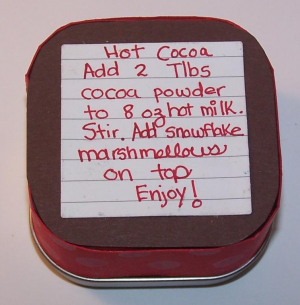 Hot Cocoa
Add 2 Tlbs
cocoa powder
to 8 oz hot milk.
Stir. Add snowflake
marshmellows
on top
Enjoy!